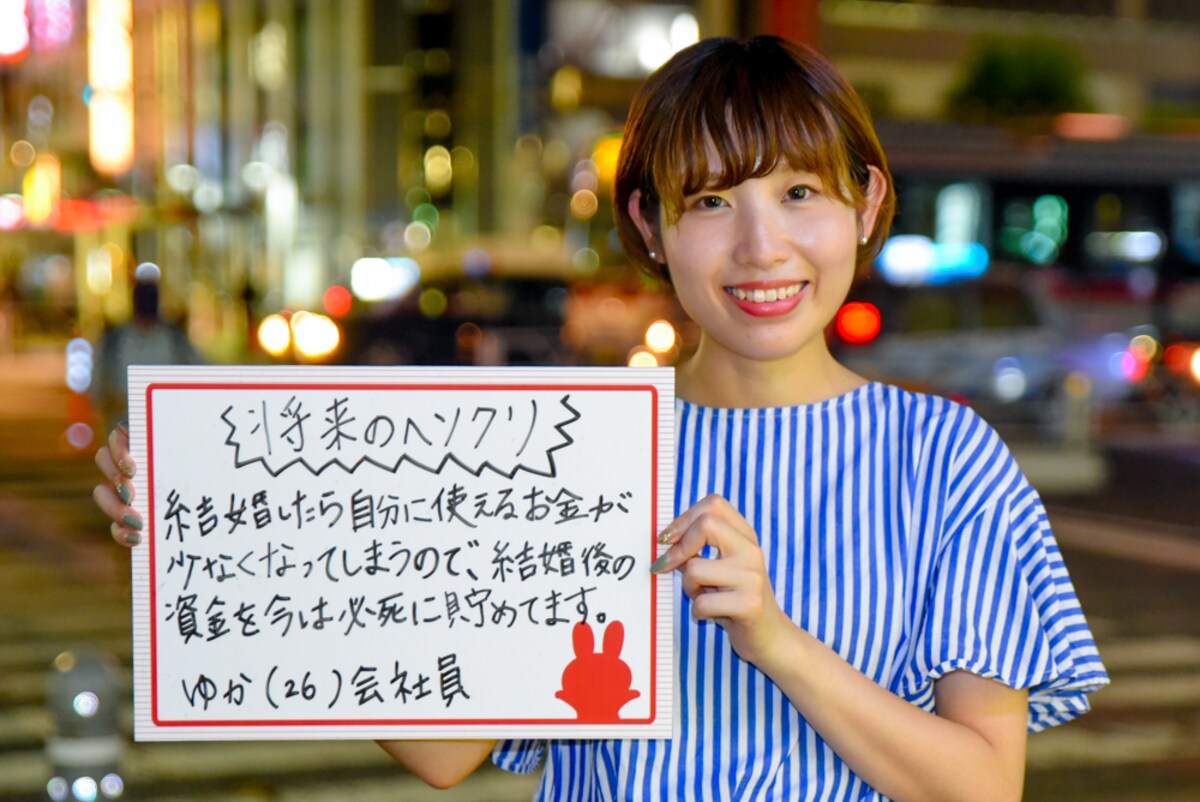 将来のヘソクリ
結婚したら自分に使えるお金が
少なくなってしまうので、結婚後の
資金を今は必死に貯めてます。
ゆか(26)会社員